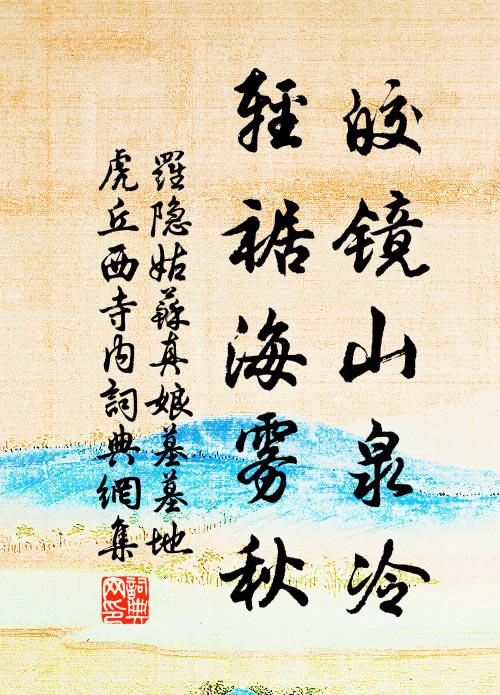 皎镜山泉冷
轻裾海雾秋
羅隐姑蘇真娘墓墓地
虎丘西寺内詞典網集
詞典网印